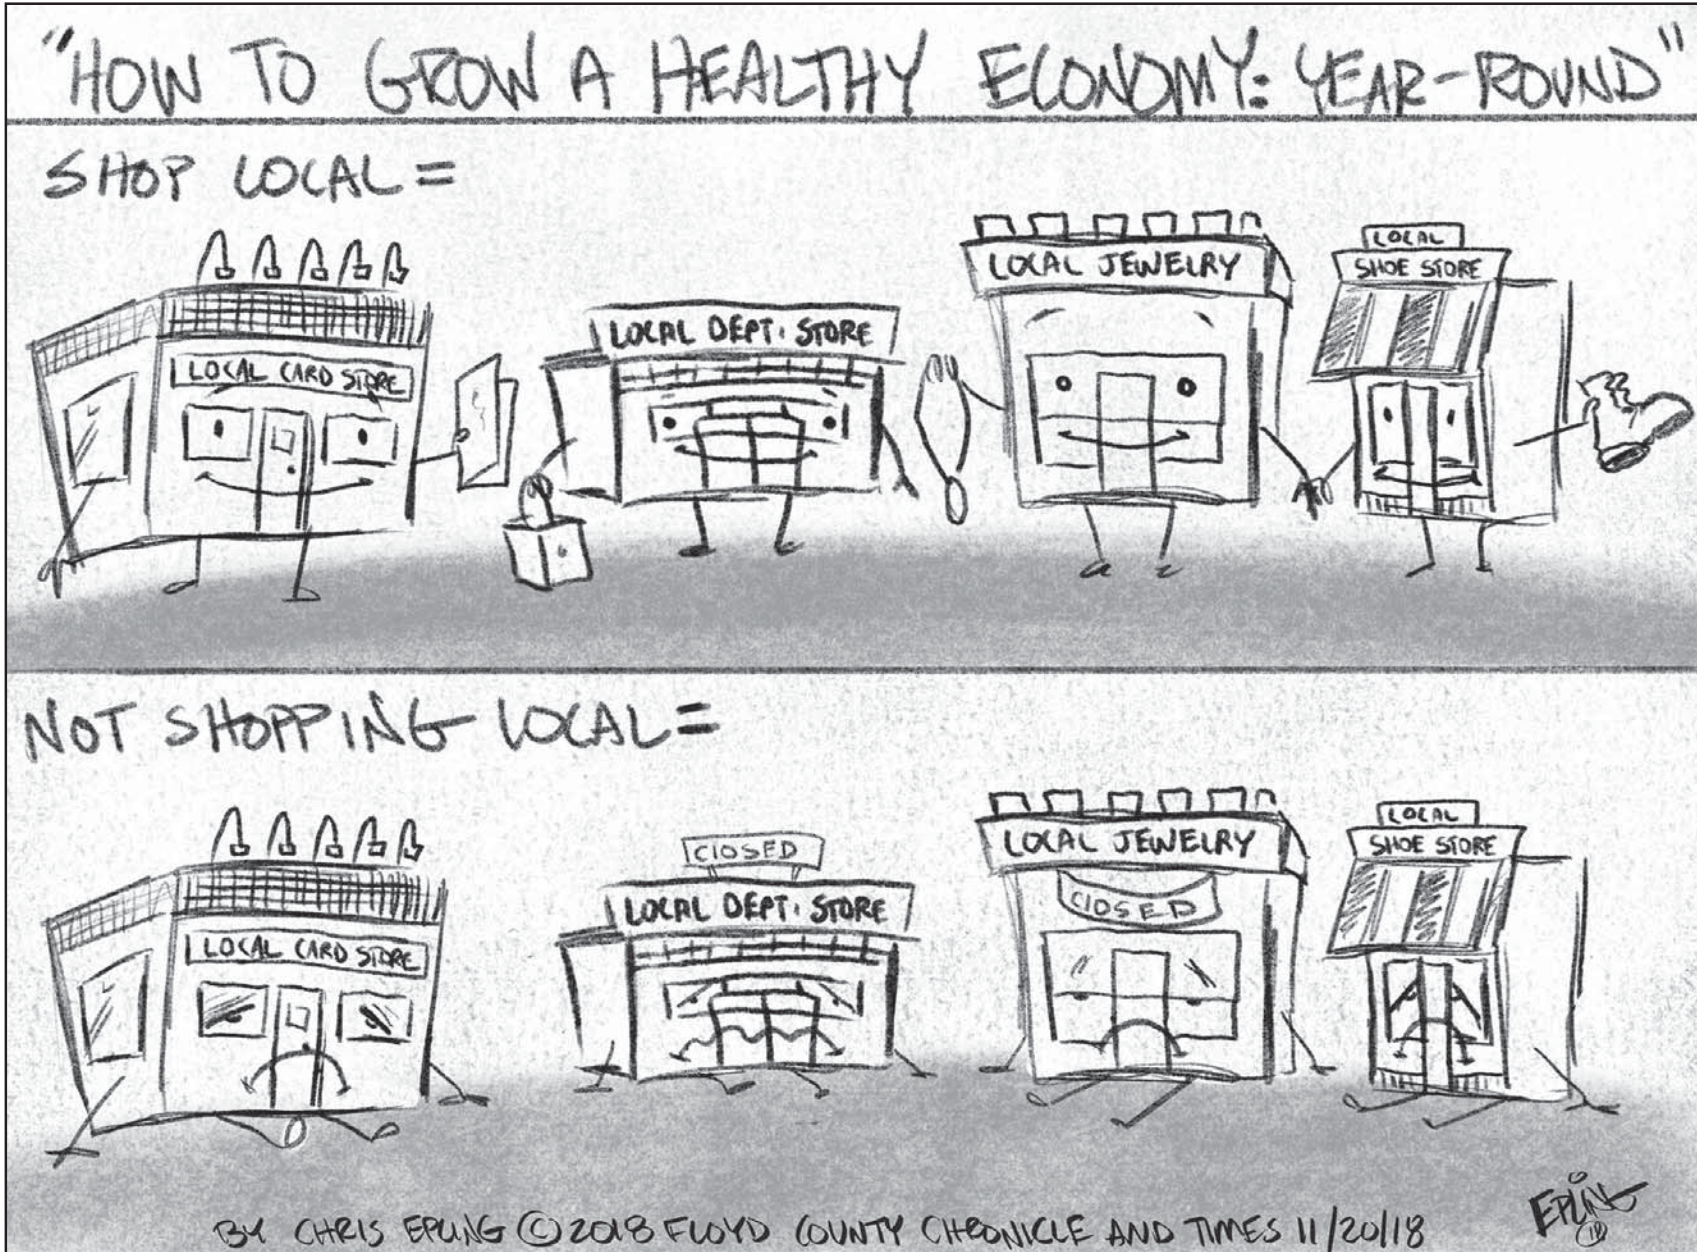 "HOW TO GROW A HEALTHY ECONOMY: YEAR-ROUND"
SHOP LOCAL =
LOCAL CARD STORE
LOCAL DEPT. STORE
LOCAL JEWELRY
LOCAL
SHOE STORE
NOT SHOPPING LOCAL =
LOCAL CARD STORE
CLOSED
LOCAL DEPT. STORE
LOCAL JEWELRY
CLOSED
LOCAL
SHOE STORE
EPLING
18
BY CHRIS EPLING © 2018 FLOYD COUNTY CHRONICLE AND TIMES 11/20/18